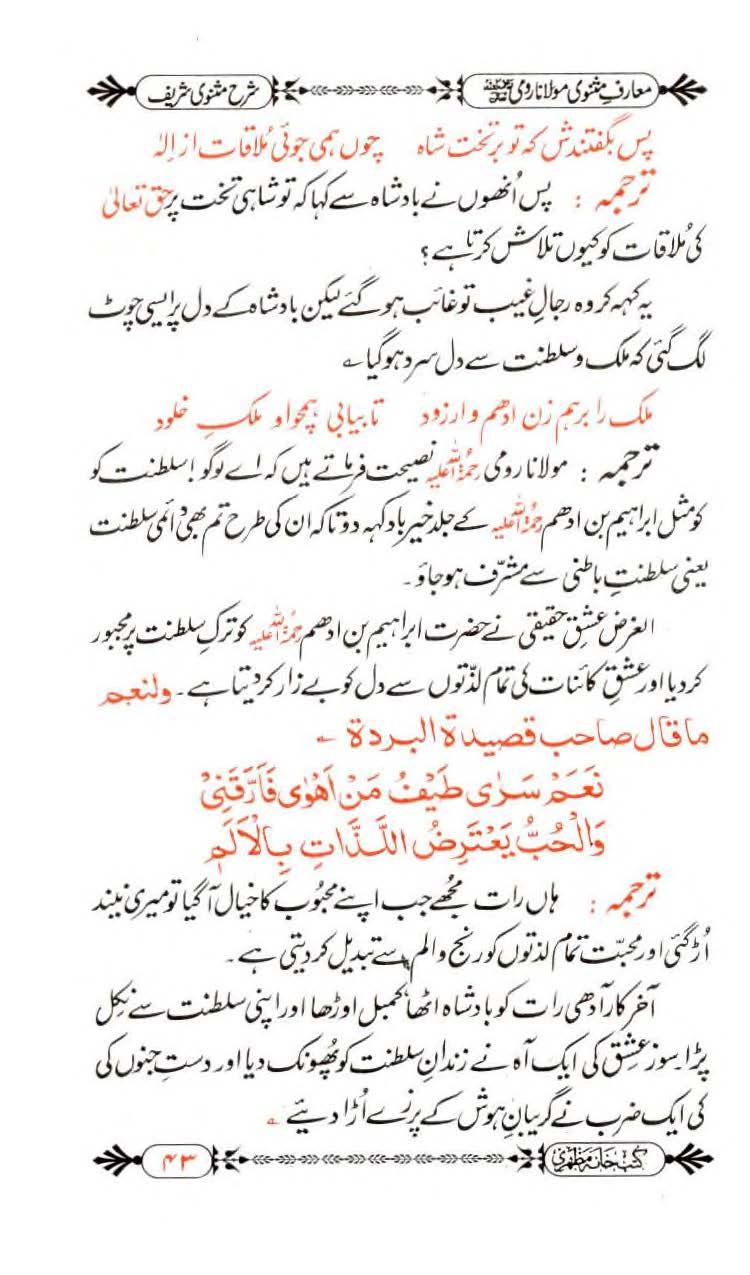 معارفِ مثنوی مولانا رومی شرح مثنوی شریف
پس بگفتندش کہ تو برتخت شاہ چوں ہمی جوئی مُلاقات از اِلٰہ
ترجمہ : پس اُنھوں نے بادشاہ سے کہا کہ تو شاہی تخت پر حق تعالیٰ
کی مُلاقات کو کیوں تلاش کرتا ہے ؟
یہ کہہ کر وہ رجالِ غیب تو غائب ہو گئے لیکن بادشاہ کے دل پر ایسی چوٹ
لگ گئی کہ ملک و سلطنت سے دل سرد ہو گیا ؎
ملک را برہم زن ادھم وار زود تا بیابی ہمچو او ملکِ خلود
ترجمہ : مولانا رومی رحمۃُ اللہ علیہ نصیحت فرماتے ہیں کہ اے لوگو ! سلطنت کو
کو مثل ابراہیم بن ادھم رحمۃُ اللہ علیہ کے جلد خیر باد کہہ دو تاکہ ان کی طرح تم بھی دائمی سلطنت
یعنی سلطنتِ باطنی سے مشرّف ہو جاؤ ۔
الغرض عشقِ حقیقی نے حضرت ابراہیم بن ادھم رحمۃُ اللہ علیہ کو ترکِ سلطنت پر مجبور
کر دیا اور عشق کائنات کی تمام لذّتوں سے دل کو بے زار کر دیتا ہے ۔ ولنعم
ما قال صاحب قصیدة البردة ؎
نَعَمْ سَرٰی طَیْفُ مَنْ اَھْوٰی فَاَرَّقَنِیْ
وَالْحُبُّ یَعْتَرِضُ اللَّذَّاتِ بِالْاَلَمِ
ترجمہ : ہاں رات مجھے جب اپنے محبوب کا خیال آ گیا تو میری نیند
اُڑ گئی اور محبّت تمام لذتوں کو رنج و الم سے تبدیل کر دیتی ہے ۔
آخر کار آدھی رات کو بادشاہ اٹھا کمبل اوڑھا اور اپنی سلطنت سے نکل
پڑا۔ سوزِ عشق کی ایک آہ نے زندانِ سلطنت کو پھونک دیا اور دستِ جنوں کی
کی ایک ضرب نے گریبانِ ہوش کے پرزے اُڑا دیئے ؎
کتب خانہ مظہری ۴۳